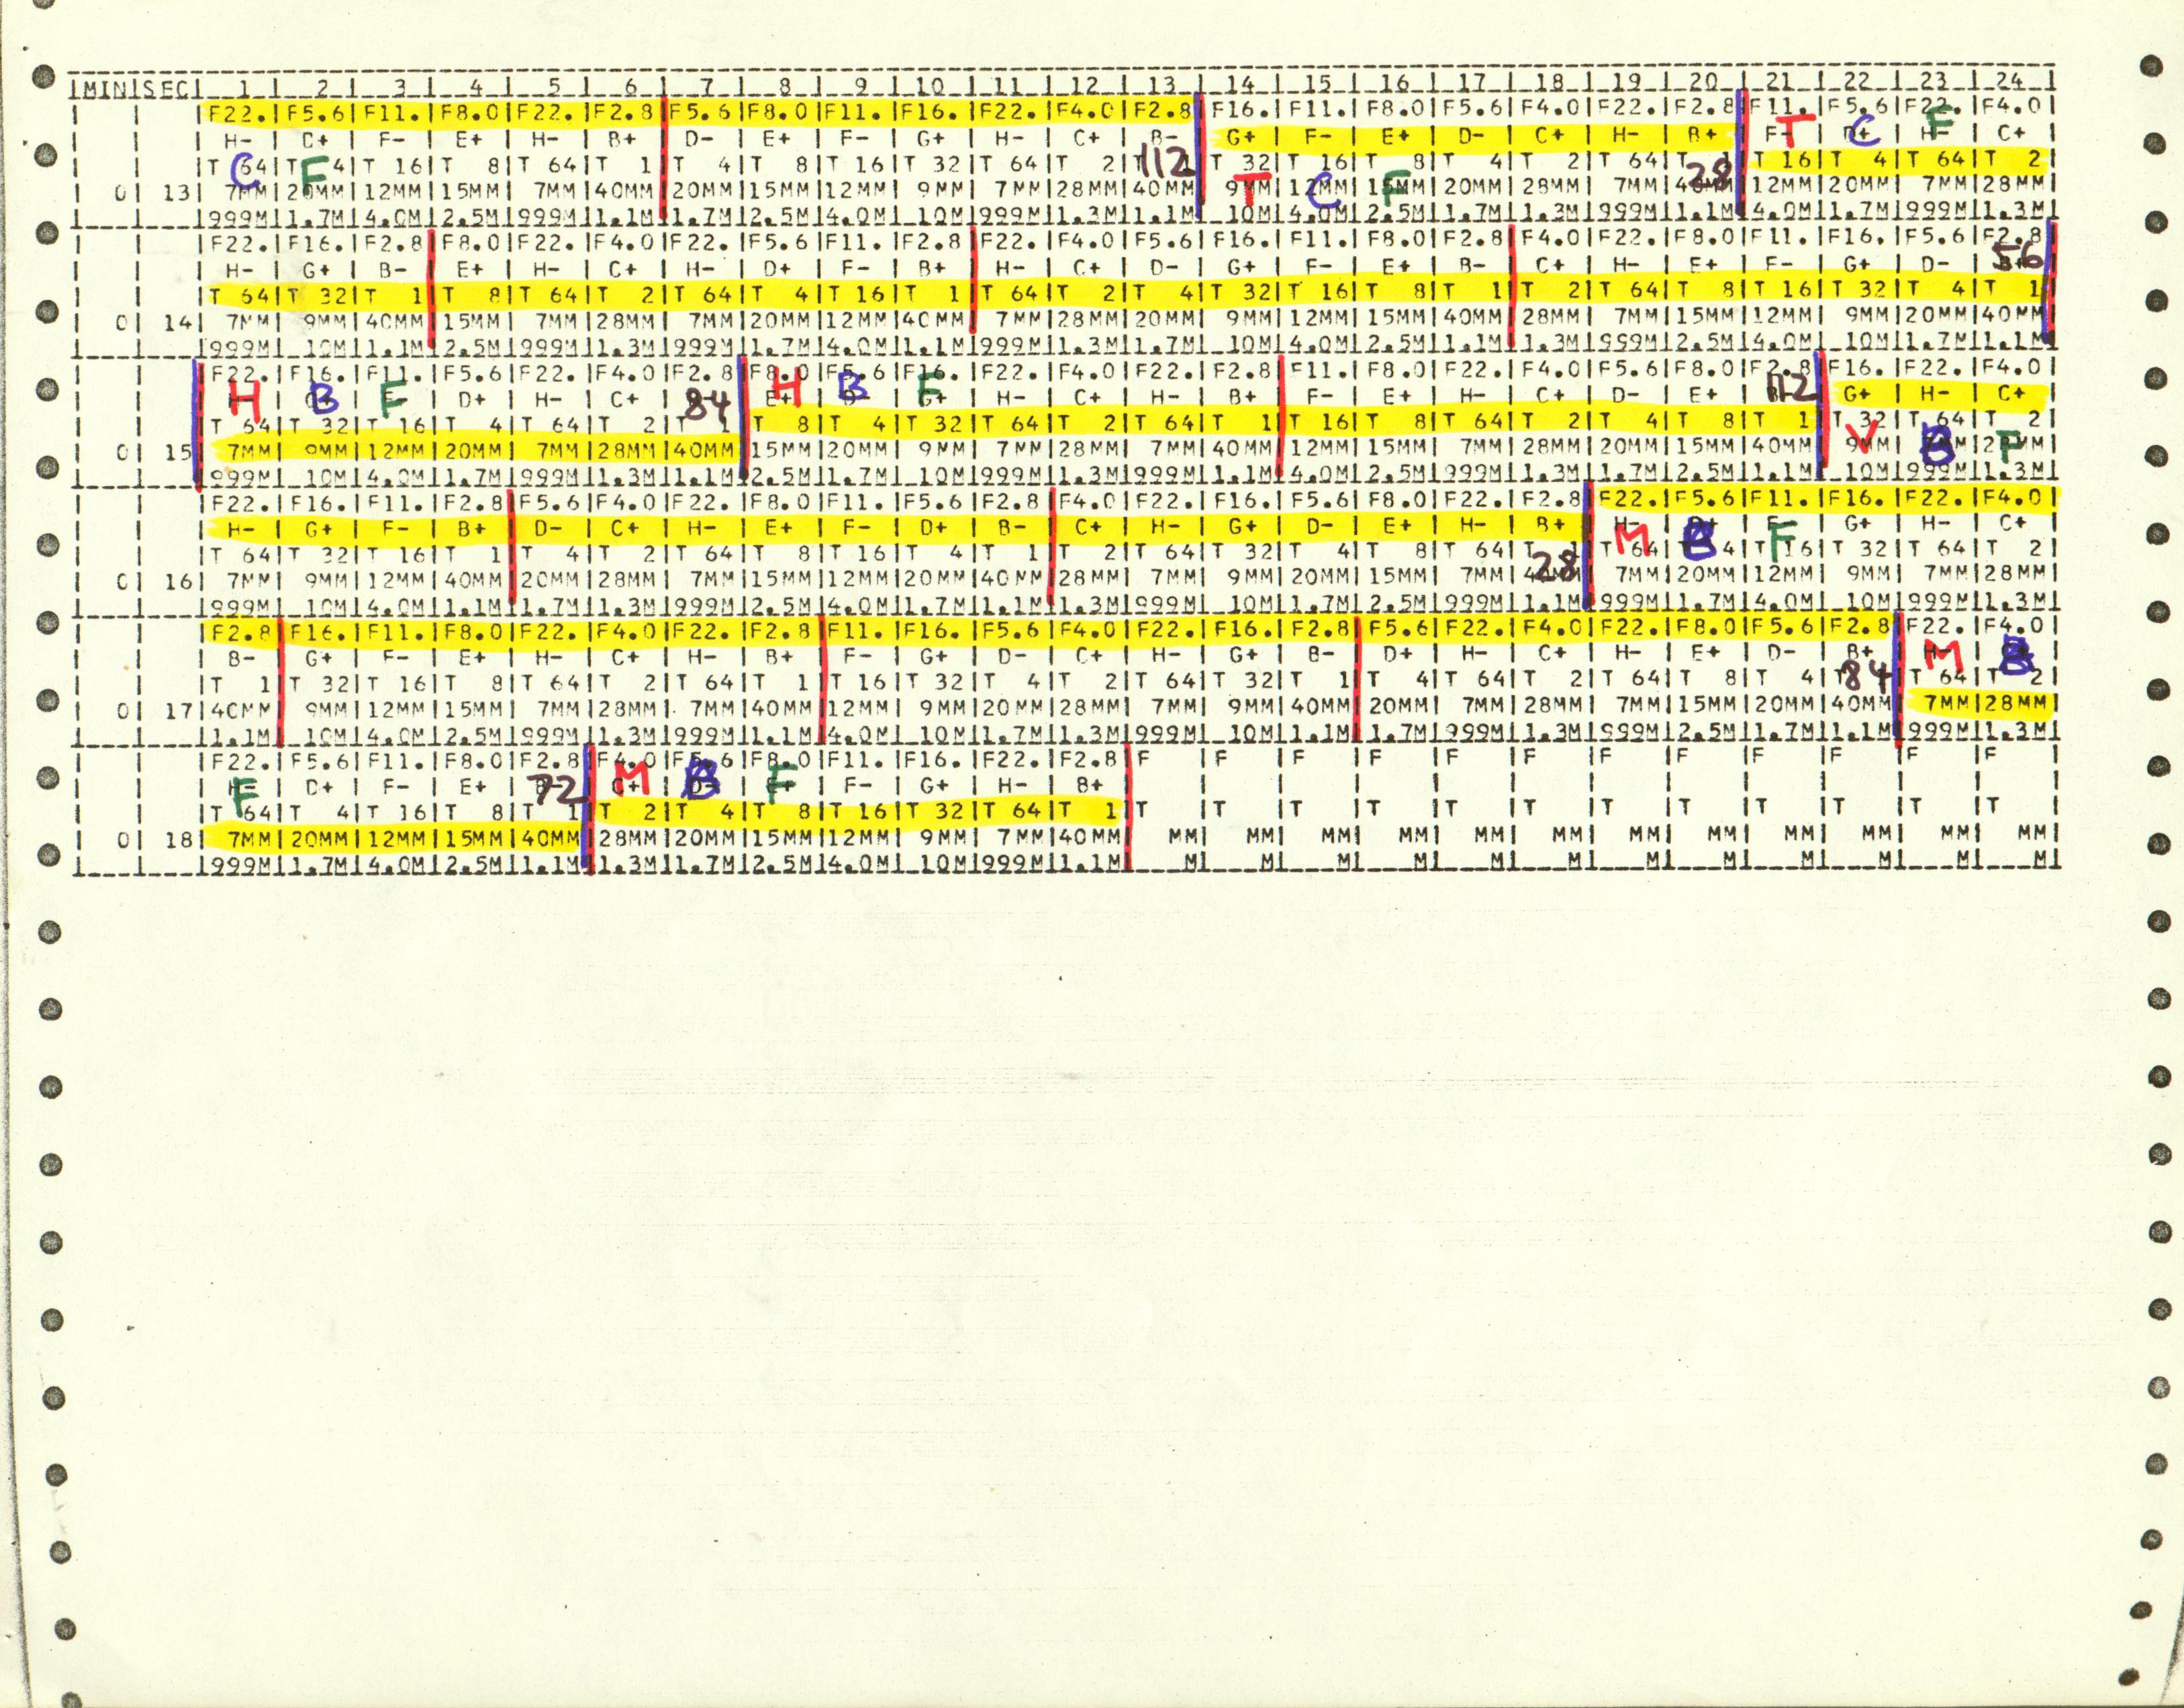 |MIN|SEC|__1_|__2_|__3_|__4_|__5_|__6_|__7_|__8_|__9_|_10_|_11_|_12_|_13_|_14_|_15_|_16_|_17_|_18_|_19_|_20_|_21_|_22_|_23_|_24_|
|F22.|F5.6|F11.|F8.0|F22.|F2.8|F5.6|F8.0|F11.|F16.|F22.|F4.0|F2.8|F16.|F11.|F8.0|F5.6|F4.0|F22.|F2.8|F11.|F5.6|F22.|F4.0|
H- | C+ | F- | E+ | H- | B+ | D- | E+ | F- | G+ | H- | C+ | B- | G+ | F- | E+ | D- | C+ | H- | B+ | F- T | D+ C | H- F | C+ |
|T 64 C|T 4 F|T 16|T 8|T 64|T 1|T 4|T 8|T 16|T 32|T 64|T 2|T 1 112|T 32|T 16|T 8|T 4|T 2|T 64|T 1 28|T 16|T 4|T 64|T 2|
| 0| 13| 7MM|20MM|12MM|15MM| 7MM|40MM|20MM|15MM|12MM| 9MM| 7MM|28MM|40MM| 9MM T|12MM C|15MM F|20MM|28MM| 7MM|40MM|12MM|20MM| 7MM|28MM|
|999M|1.7M|4.0M|2.5M|999M|1.1M|1.7M|2.5M|4.0M|_10M|999M|1.3M|1.1M|_10M|4.0M|2.5M|1.7M|1.3M|999M|1.1M|4.0M|1.7M|999M|1.3M|
|F22.|F16.|F2.8|F8.0|F22.|F4.0|F22.|F5.6|F11.|F2.8|F22.|F4.0|F5.6|F16.|F11.|F8.0|F2.8|F4.0|F22.|F8.0|F11.|F16.|F5.6|F2.8|
H- | G+ | B- | E+ | H- | C+ | H- | D+ | F- | B+ | H- | C+ | D- | G+ | F- | E+ | B- | C+ | H- | E+ | F- | G+ | D- | 56
|T 64|T 32|T 1|T 8|T 64|T 2|T 64|T 4|T 16|T 1|T 64|T 2|T 4|T 32|T 16|T 8|T 1|T 2|T 64|T 8|T 16|T 32|T 4|T 1|
| 0| 14| 7MM| 9MM|40MM|15MM| 7MM|28MM| 7MM|20MM|12MM|40MM| 7MM|28MM|20MM| 9MM|12MM|15MM|40MM|28MM| 7MM|15MM|12MM| 9MM|20MM|40MM|
|999M|_10M|1.1M|2.5M|999M|1.3M|999M|1.7M|4.0M|1.1M|999M|1.3M|1.7M|_10M|4.0M|2.5M|1.1M|1.3M|999M|2.5M|4.0M|_10M|1.7M|1.1M|
|F22.|F16.|F11.|F5.6|F22.|F4.0|F2.8|F8.0|F5.6|F16.|F22.|F4.0|F22.|F2.8|F11.|F8.0|F22.|F4.0|F5.6|F8.0|F2.8|F16.|F22.|F4.0|
H | B | F | D+ | H- | C+ | 84 | E+ H | D- B | G+ F | H- | C+ | H- | B+ | F- | E+ | H- | C+ | D- | E+ | 112 | G+ | H- | C+ |
|T 64|T 32|T 16|T 4|T 64|T 2|T 1|T 8|T 4|T 32|T 64|T 2|T 64|T 1|T 16|T 8|T 64|T 2|T 4|T 8|T 1|T 32|T 64|T 2|
| 0| 15| 7MM| 9MM|12MM|20MM| 7MM|28MM|40MM|15MM|20MM| 9MM| 7MM|28MM| 7MM|40MM|12MM|15MM| 7MM|28MM|20MM|15MM|40MM| 9MM V| 7MM B|28MM F|
|999M|_10M|4.0M|1.7M|999M|1.3M|1.1M|2.5M|1.7M|_10M|999M|1.3M|999M|1.1M|4.0M|2.5M|999M|1.3M|1.7M|2.5M|1.1M|_10M|999M|1.3M|
|F22.|F16.|F11.|F2.8|F5.6|F4.0|F22.|F8.0|F11.|F5.6|F2.8|F4.0|F22.|F16.|F5.6|F8.0|F22.|F2.8|F22.|F5.6|F11.|F16.|F22.|F4.0|
H- | G+ | F- | B+ | D- | C+ | H- | E+ | F- | D+ | B- | C+ | H- | G+ | D- | E+ | H- | B+ | H- M | B | F- F | G+ | H- | C+ |
|T 64|T 32|T 16|T 1|T 4|T 2|T 64|T 8|T 16|T 4|T 1|T 2|T 64|T 32|T 4|T 8|T 64|T 1|T 64|T 4|T 16|T 32|T 64|T 2|
| 0| 16| 7MM| 9MM|12MM|40MM|20MM|28MM| 7MM|15MM|12MM|20MM|40MM|28MM| 7MM| 9MM|20MM|15MM| 7MM|40MM 28| 7MM|20MM|12MM| 9MM| 7MM|28MM|
|999M|_10M|4.0M|1.1M|1.7M|1.3M|999M|2.5M|4.0M|1.7M|1.1M|1.3M|999M|_10M|1.7M|2.5M|999M|1.1M|999M|1.7M|4.0M|_10M|999M|1.3M|
|F2.8|F16.|F11.|F8.0|F22.|F4.0|F22.|F2.8|F11.|F16.|F5.6|F4.0|F22.|F16.|F2.8|F5.6|F22.|F4.0|F22.|F8.0|F5.6|F2.8|F22.|F4.0|
B- | G+ | F- | E+ | H- | C+ | H- | B+ | F- | G+ | D- | C+ | H- | G+ | B- | D+ | H- | C+ | H- | E+ | D- | B+ | M | B
|T 1|T 32|T 16|T 8|T 64|T 2|T 64|T 1|T 16|T 32|T 4|T 2|T 64|T 32|T 1|T 4|T 64|T 2|T 64|T 8|T 4|T 84|T 64|T 2|
| 0| 17|40MM| 9MM|12MM|15MM| 7MM|28MM| 7MM|40MM|12MM| 9MM|20MM|28MM| 7MM| 9MM|40MM|20MM| 7MM|28MM| 7MM|15MM|20MM|40MM| 7MM|28MM|
|1.1M|_10M|4.0M|2.5M|999M|1.3M|999M|1.1M|4.0M|_10M|1.7M|1.3M|999M|_10M|1.1M|1.7M|999M|1.3M|999M|2.5M|1.7M|1.1M|999M|1.3M|
|F22.|F5.6|F11.|F8.0|F2.8|F4.0|F5.6|F8.0|F11.|F16.|F22.|F2.8|F |F |F |F |F |F |F |F |F |F |F |F |
H- F | D+ | F- | E+ | 72 | C+ M | D- B | E+ F | F- | G+ | H- | B+ |
|T 64|T 4|T 16|T 8|T 1|T 2|T 4|T 8|T 16|T 32|T 64|T 1|T |T |T |T |T |T |T |T |T |T |T |T |
| 0| 18| 7MM|20MM|12MM|15MM|40MM|28MM|20MM|15MM|12MM| 9MM| 7MM|40MM| MM| MM| MM| MM| MM| MM| MM| MM| MM| MM| MM| MM|
|999M|1.7M|4.0M|2.5M|1.1M|1.3M|1.7M|2.5M|4.0M|_10M|999M|1.1M|___M|___M|___M|___M|___M|___M|___M|___M|___M|___M|___M|___M|